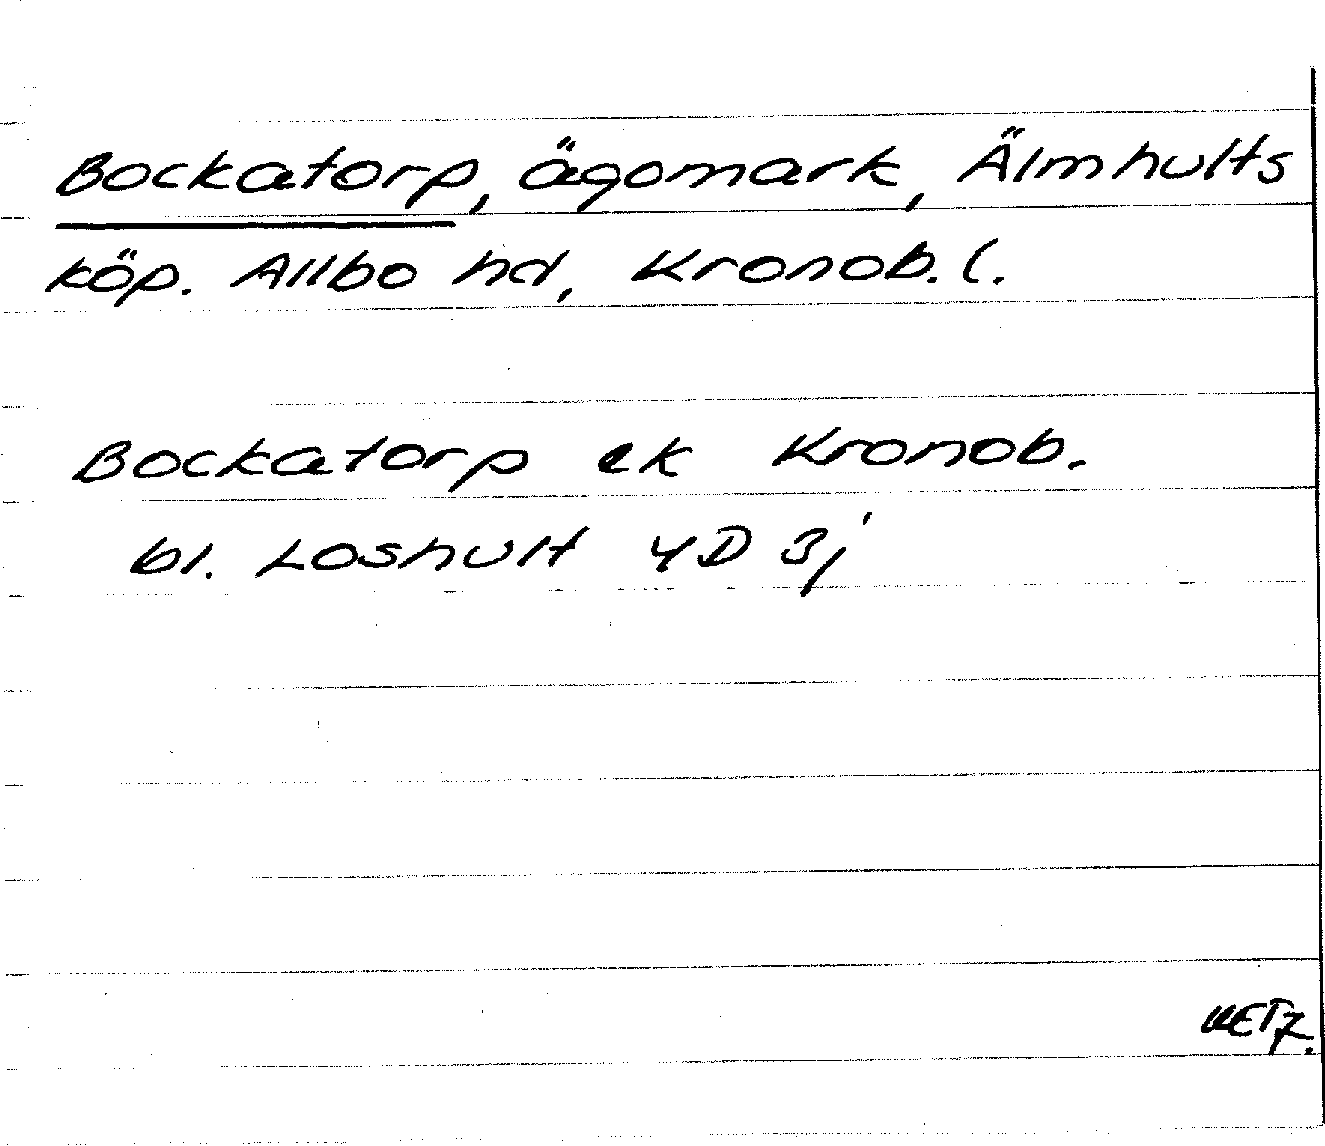 Bockatorp, ägomark, Älmhults
köp. Allbo hd, Kronob. l.
Bockatorp ek Kronob.
bl. Loshult 4D 3j